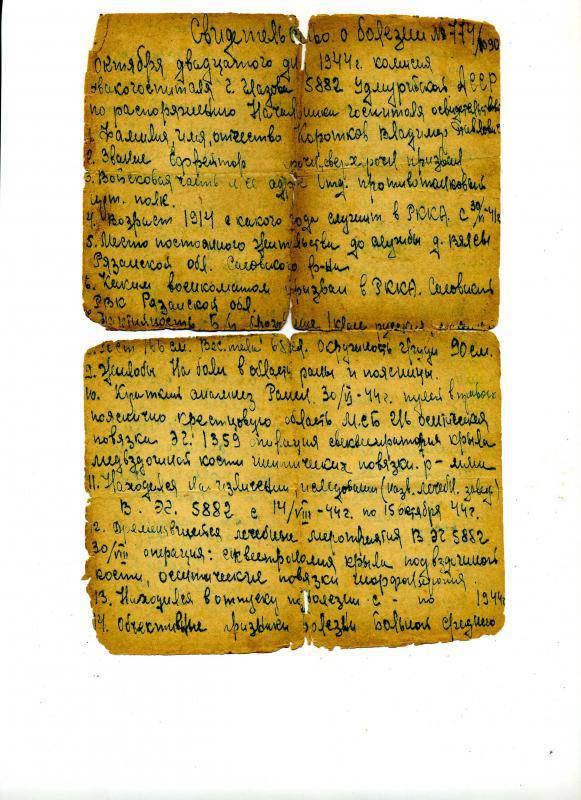 Свидетельство о болезни № 774/
Октября двадцатого дня 1944 г. комисия
Эвакогоспиталя г. Глазова 5882 Удмуртской АССР
по распоряжению Начальника госпиталя освидетельств
1. Фамилия, имя, отчество Коротков Владимир Павлович
2. Звание Ефрейтор призван
3. Войсковая часть и её адрес Отд. противотанковый
полк.
4. Возраст 1914 с какого года служит в РККА. с
5. Место постоянного жительства до службы д. Вялсы
Рязанской обл. Сасовского р-на
6. Каким военкоматом призван в РККА. Сасовский
РВК Рязанской обл.
Рост 166 см. Вес тела 68 кг. Окружность груди 90 см.
9. Жалобы На боли в области раны и поясницы.
10. Краткий анамнез Ранен 30/VI-44 г. пулей в правую
пояснично крестцовую область МСБ асептическая
повязка ЭГ. 1359 операция секвестротомия крыла
подвздошной кости повязки.
11. Находился на излечении, исследовании (назв. лечебн. завед)
В. ЭГ. 5882 с 14/VIII-44 г. по 15 октября 44 г.
12. лечебные мероприятия В ЭГ 5882
30/VIII операция: секвестротомия крыла подвздошной
кости, асептические повязки
13. Находился в отпуску по болезни с - по 1944 г
14. Объективные признаки болезни Больной среднего